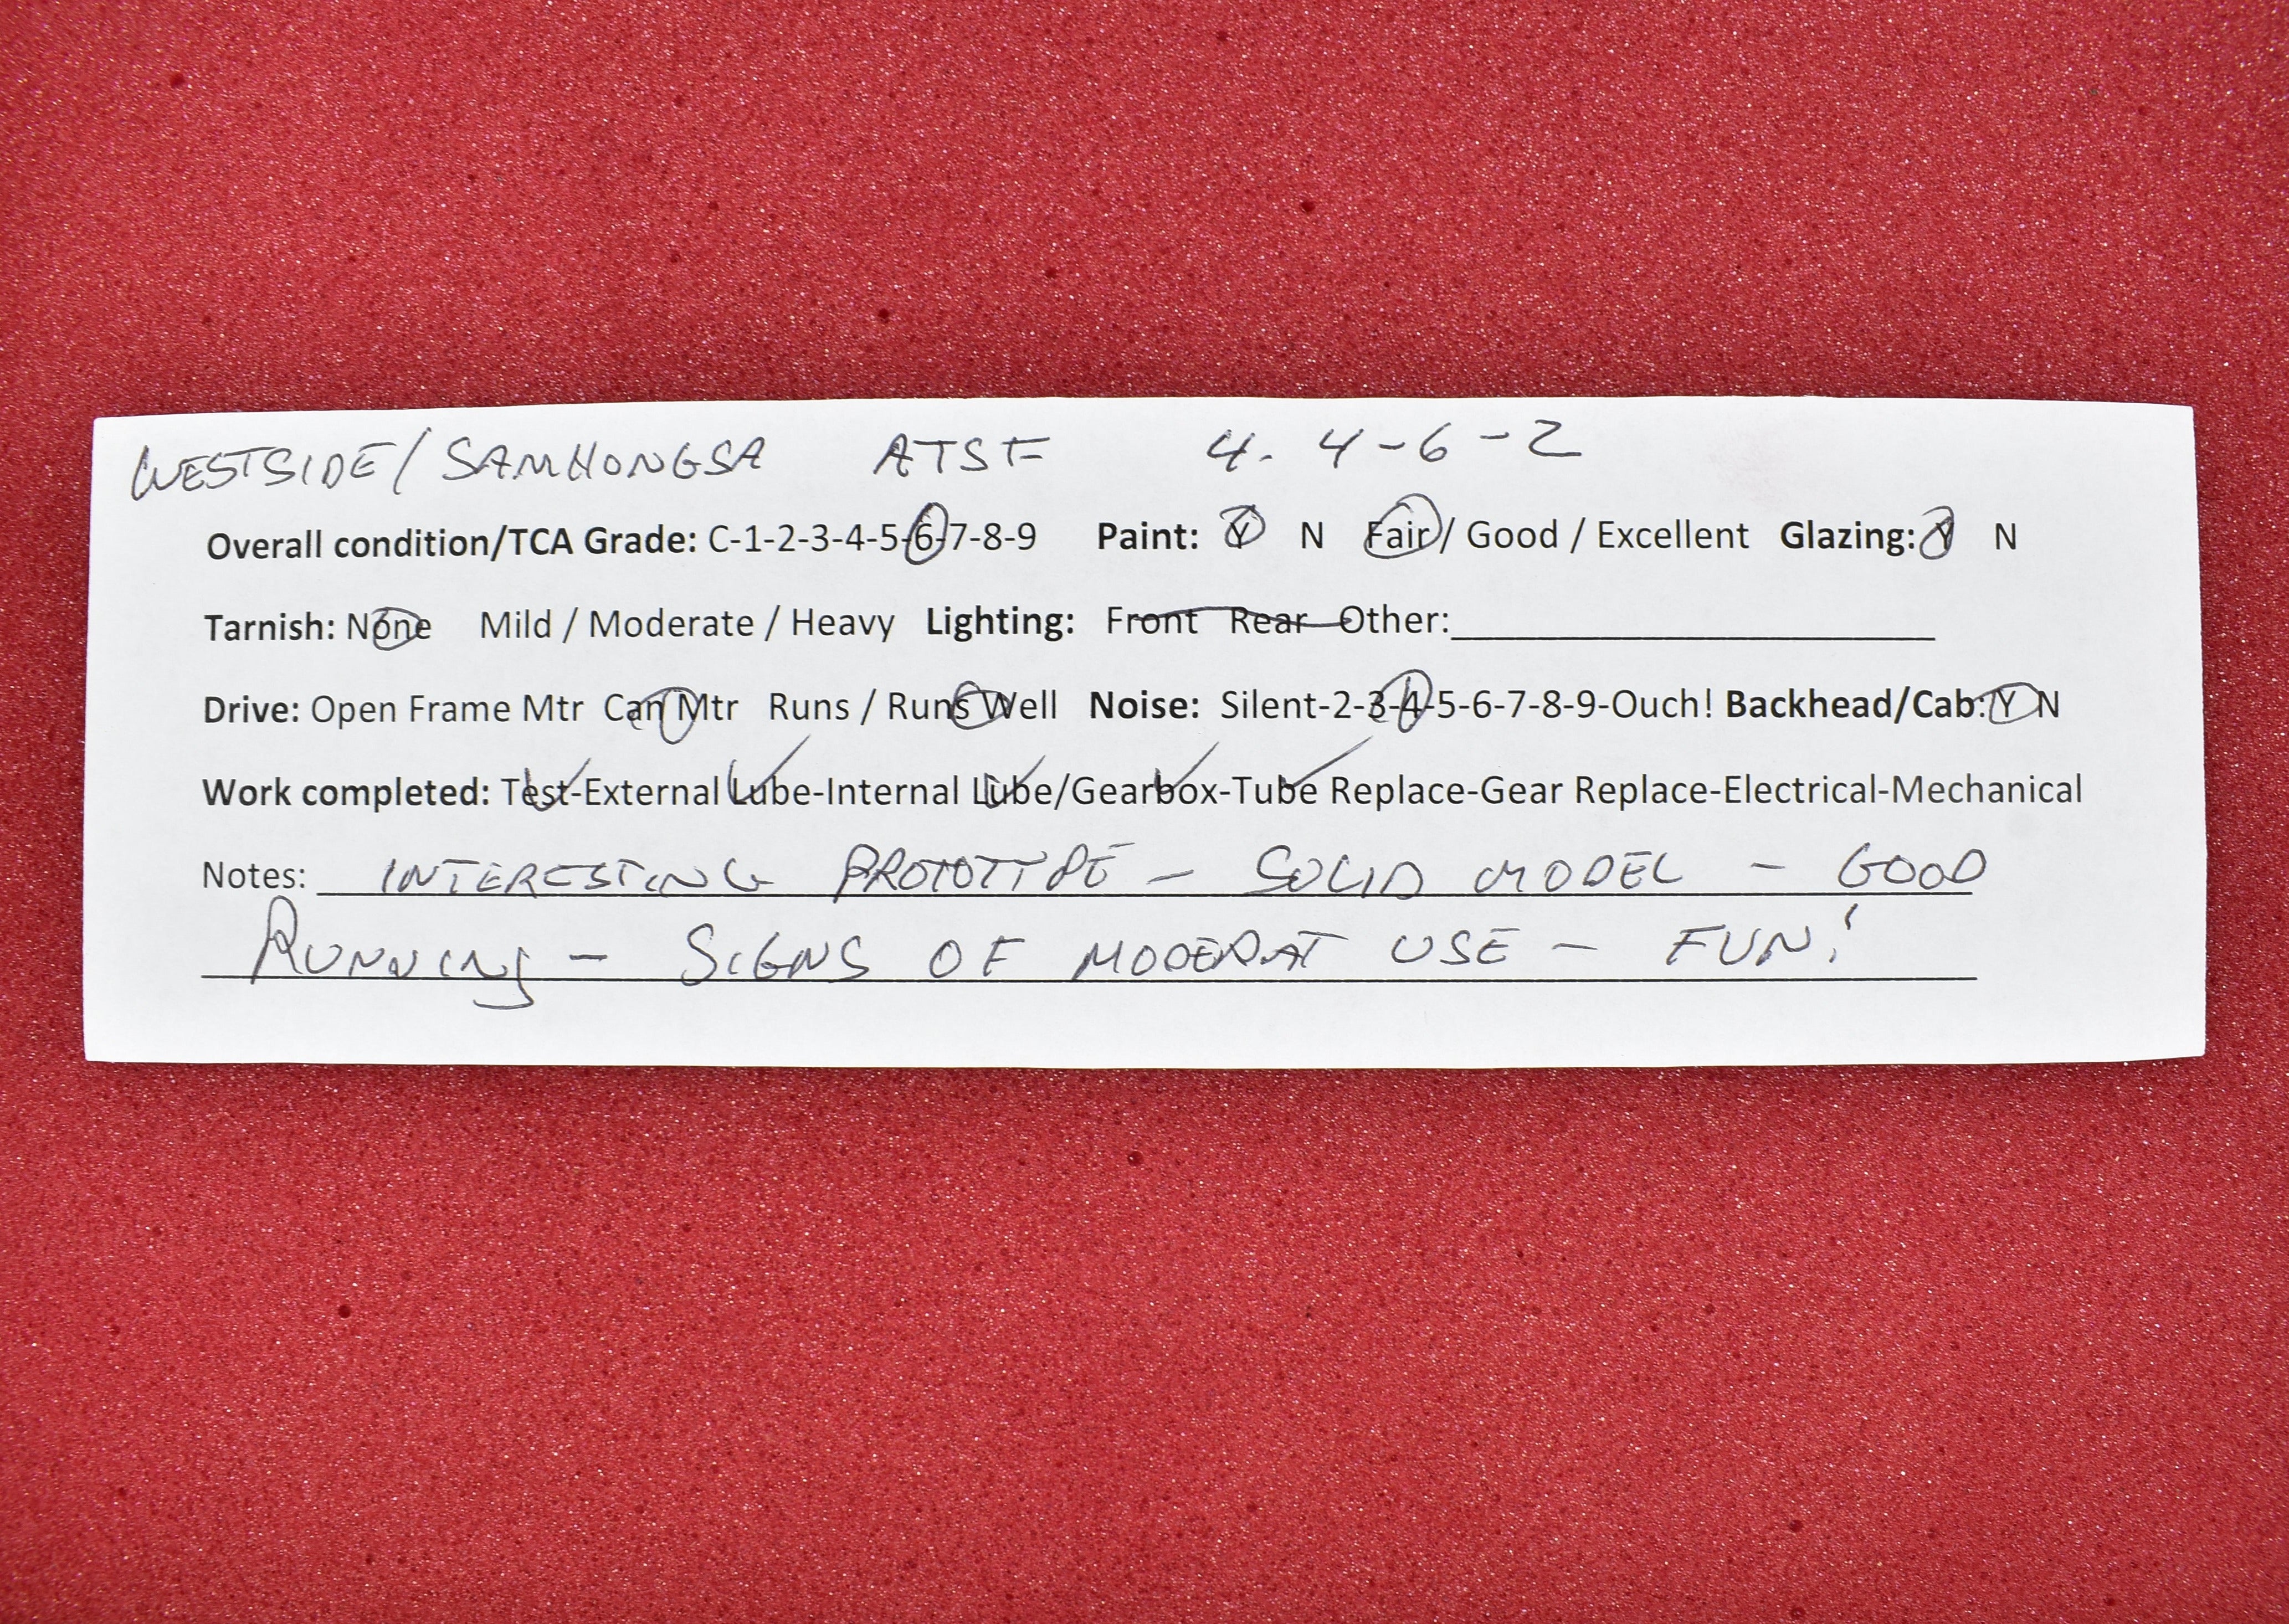 WESTSIDE/SAMHONGSA ATSF 4-4-6-2
Overall condition/TCA Grade: C-1-2-3-4-5-6-7-8-9 Paint: Y N Fair / Good / Excellent Glazing: Y N
Tarnish: None Mild / Moderate / Heavy Lighting: Front Rear Other:
Drive: Open Frame Mtr Can Mtr Runs / Runs Well Noise: Silent-2-3-4-5-6-7-8-9-Ouch! Backhead/Cab: Y N
Work completed: Test-External Lube-Internal Lube/Gearbox-Tube Replace-Gear Replace-Electrical-Mechanical
Notes: INTERESTING PROTOTYPE - SOLID MODEL - GOOD
RUNNING - SIGNS OF MODERAT USE - FUN!